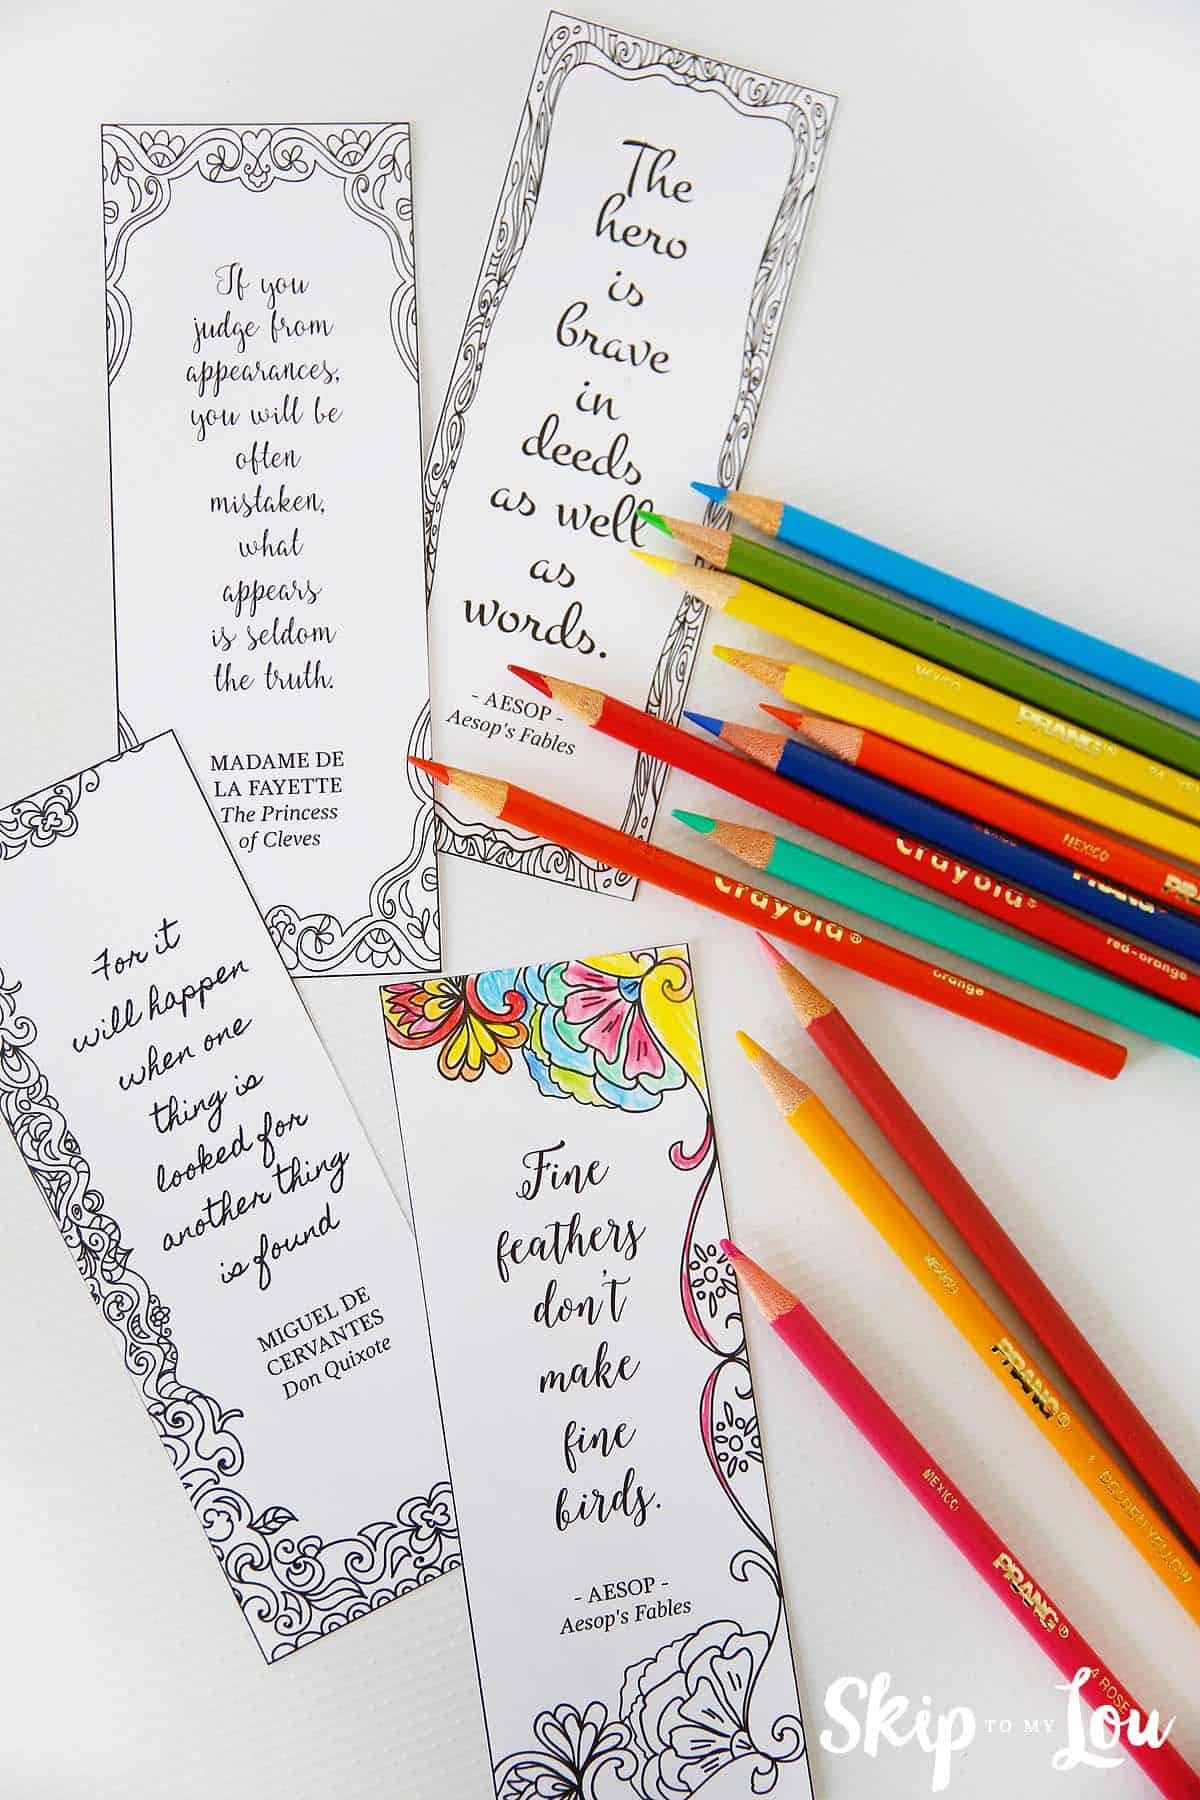 The
hero
is
brave
in
deeds
as well
as
words.
- AESOP -
Aesop's Fables
If you
judge from
appearances,
you will be
often
mistaken,
what
appears
is seldom
the truth.
MADAME DE
LA FAYETTE
The Princess
of Cleves
For it
will happen
when one
thing is
looked for
another thing
is found
MIGUEL DE
CERVANTES
Don Quixote
Fine
feathers
don't
make
fine
birds.
- AESOP -
Aesop's Fables
MEXICO
PRANG®
MEXICO
PRANG
Crayola®
red-orange
Crayola®
orange
MEXICO
PRANG®
GOLDEN YELLOW
MEXICO
PRANG®
4 ROSE
Skip TO MY Lou